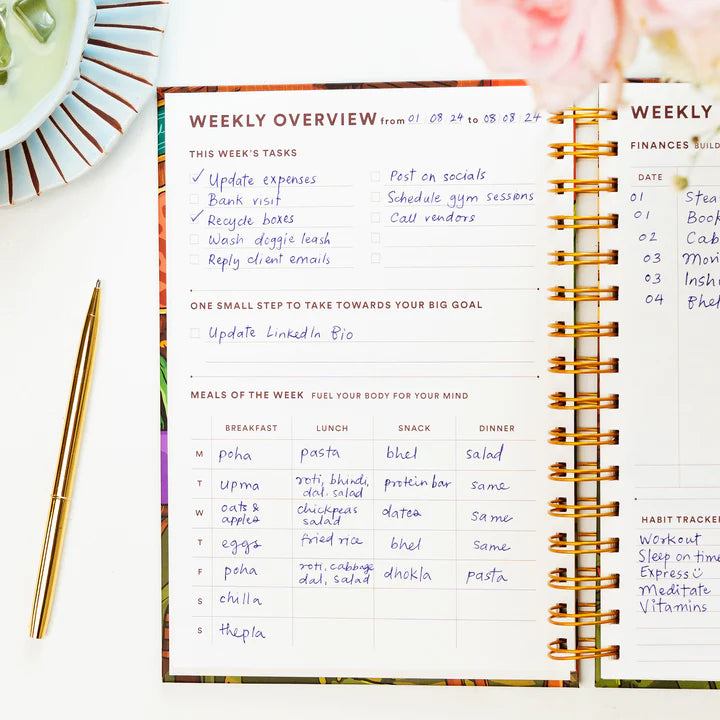 WEEKLY OVERVIEW from 01 08 24 to 08 08 24
THIS WEEK'S TASKS
Update expenses
Bank visit
Recycle boxes
Wash doggie leash
Reply client emails
Post on socials
Schedule gym sessions
Call vendors
ONE SMALL STEP TO TAKE TOWARDS YOUR BIG GOAL
Update LinkedIn Bio
MEALS OF THE WEEK FUEL YOUR BODY FOR YOUR MIND
BREAKFAST LUNCH SNACK DINNER
M poha pasta bhel salad
T upma roti, bhindi, dal, salad protein bar same
W oats & apples chickpeas salad dates same
T eggs fried rice bhel same
F poha roti, cabbage dal, salad dhokla pasta
S chilla
S thepla
WEEKLY
FINANCES
DATE
01
01 Book
02 Cab
03
03
04
HABIT TRACKER
Workout
Sleep on time
Express
Meditate
Vitamins